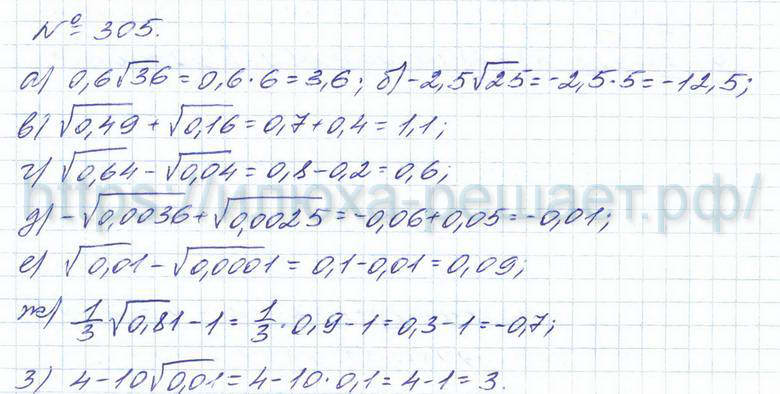 № 305.
а) 0,6√36 = 0,6·6 = 3,6; б) -2,5√25 = -2,5·5 = -12,5;
в) √0,49 + √0,16 = 0,7 + 0,4 = 1,1;
г) √0,64 - √0,04 = 0,8 - 0,2 = 0,6;
https://илюха-решает.рф/
д) -√0,0036 + √0,0025 = -0,06 + 0,05 = -0,01;
е) √0,01 - √0,0001 = 0,1 - 0,01 = 0,09;
ж) 1/3 √0,81 - 1 = 1/3 · 0,9 - 1 = 0,3 - 1 = -0,7;
з) 4 - 10√0,01 = 4 - 10·0,1 = 4 - 1 = 3.